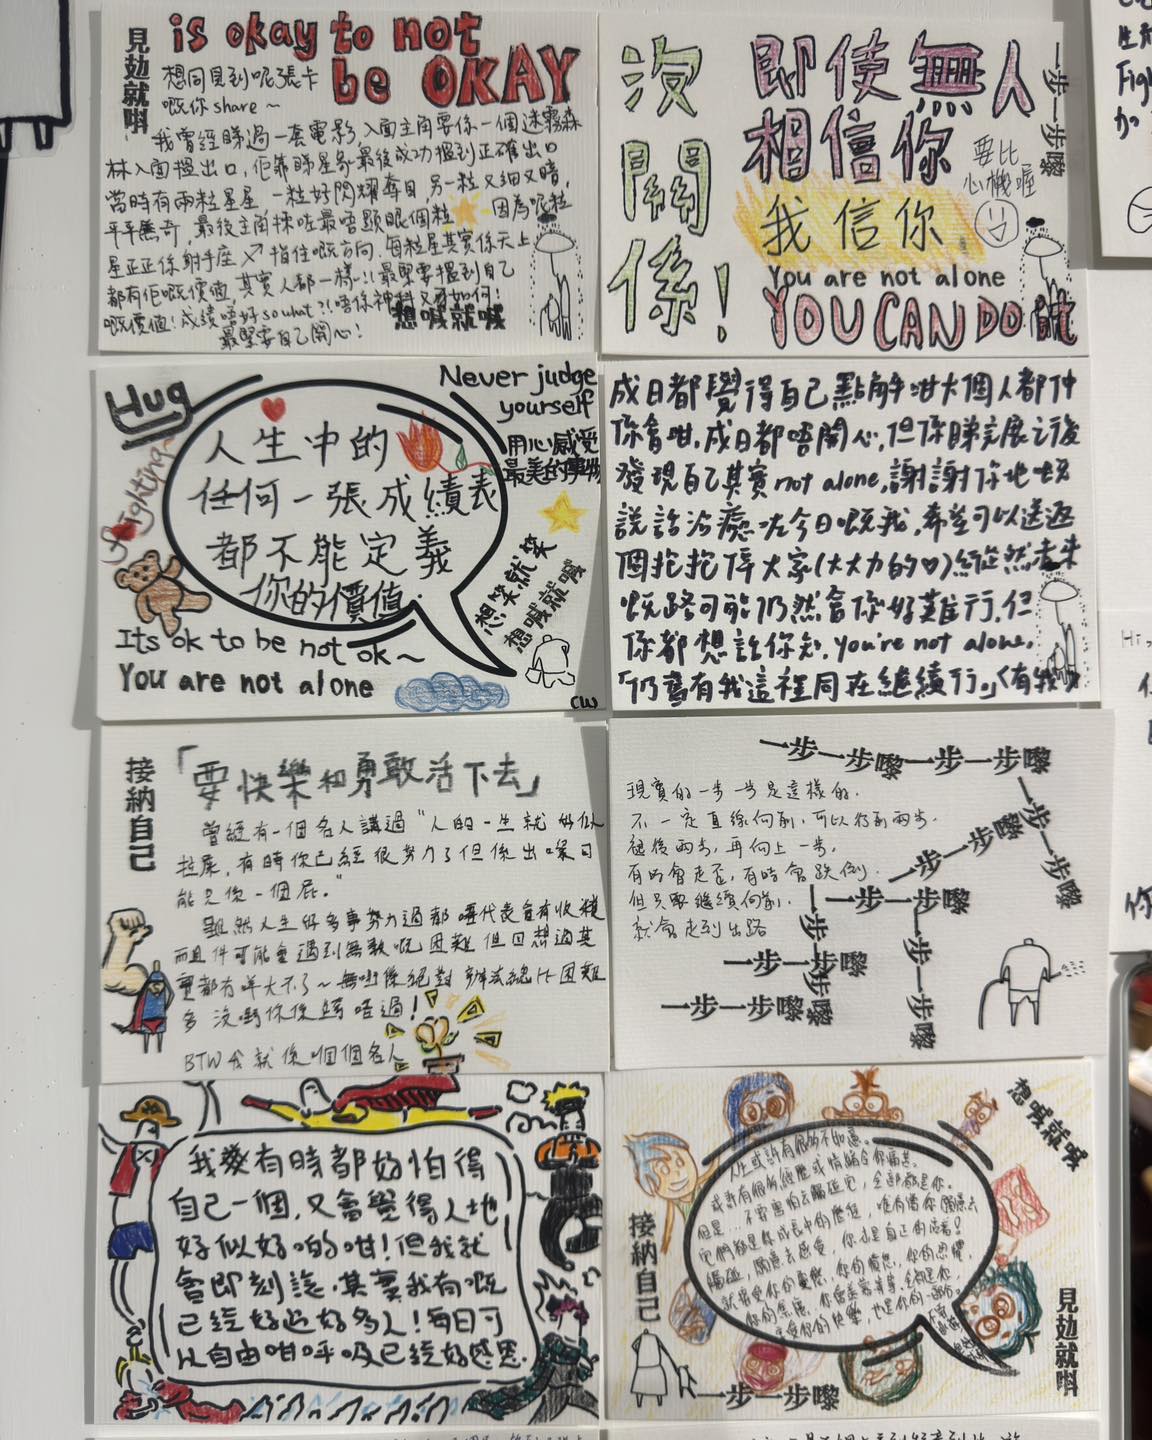 見攰就唞
is okay to not
be OKAY
想同見到呢張卡
嘅你 share ~
我曾經睇過一套電影,入面主角要係一個迷霧森
林入面搵出口,佢靠睇星象最後成功搵到正確出口
當時有兩粒星星 一粒好閃耀奪目,另一粒又細又暗,
平平無奇,最後主角揀咗最唔顯眼個粒 因為呢粒
星正正係射手座↗指住嘅方向,每粒星其實係天上
都有佢嘅價值,其實人都一樣!!最緊要搵到自己
嘅價值!成績唔好so what?!唔係神科又有如何!
最緊要自己開心!
想喊就喊
沒關係!
即使無人
相信你
一步一步嚟
要比
心機喔
我信你
You are not alone
YOU CAN DO
Hug
Never judge
yourself
用心感受
最美的事物
Fighting
人生中的
任何一張成績表
都不能定義
你的價值.
想笑就笑
想喊就喊
Its ok to be not ok~
You are not alone
CW
成日都覺得自己點解咁大個人都仲
係會咁,成日都唔開心,但係睇完展之後
發現自己其實not alone,謝謝你地嘅
說話治癒咗今日嘅我,希望可以送返
個抱抱俾大家(大大力的♡)縱然未來
嘅路可能仍然會係好難行,但
係都想話你知,you're not alone,
「仍舊有我這裡同在繼續行。」
接納自己
「要快樂和勇敢活下去」
曾經有一個名人講過"人的一生就好似
拉屎,有時你已經很努力了但係出嚟可
能只係一個屁。"
雖然人生好多事努力過都唔代表會有收穫
而且仲可能會遇到無數嘅困難但回想過其
實都冇咩大不了~無嘢係絕對 辦法總比困難
多 沒嘢你係跨唔過!
BTW我就係嗰個名人
一步一步嚟一步一步嚟
一步一步嚟
現實的一步一步是這樣的.
不一定直線向前,可以行前兩步.
退後兩步,再向上一步.
有時會走歪,有時會跌倒.
但只要繼續向前.
就會走到出路
一步一步嚟
一步一步嚟
一步一步嚟
一步一步嚟
一步一步嚟
一步一步嚟
我發有時都好怕得
自己一個,又會覺得人地
好似好啲咁!但我就
會即刻諗,其實我有嘅
已經好過好多人!每日可
以自由咁呼吸已經好感恩.
想喊就喊
接納自己
見攰就唞
一步一步嚟
人生或許有很多不如意。
或許有很多經歷或情緒令你痛苦。